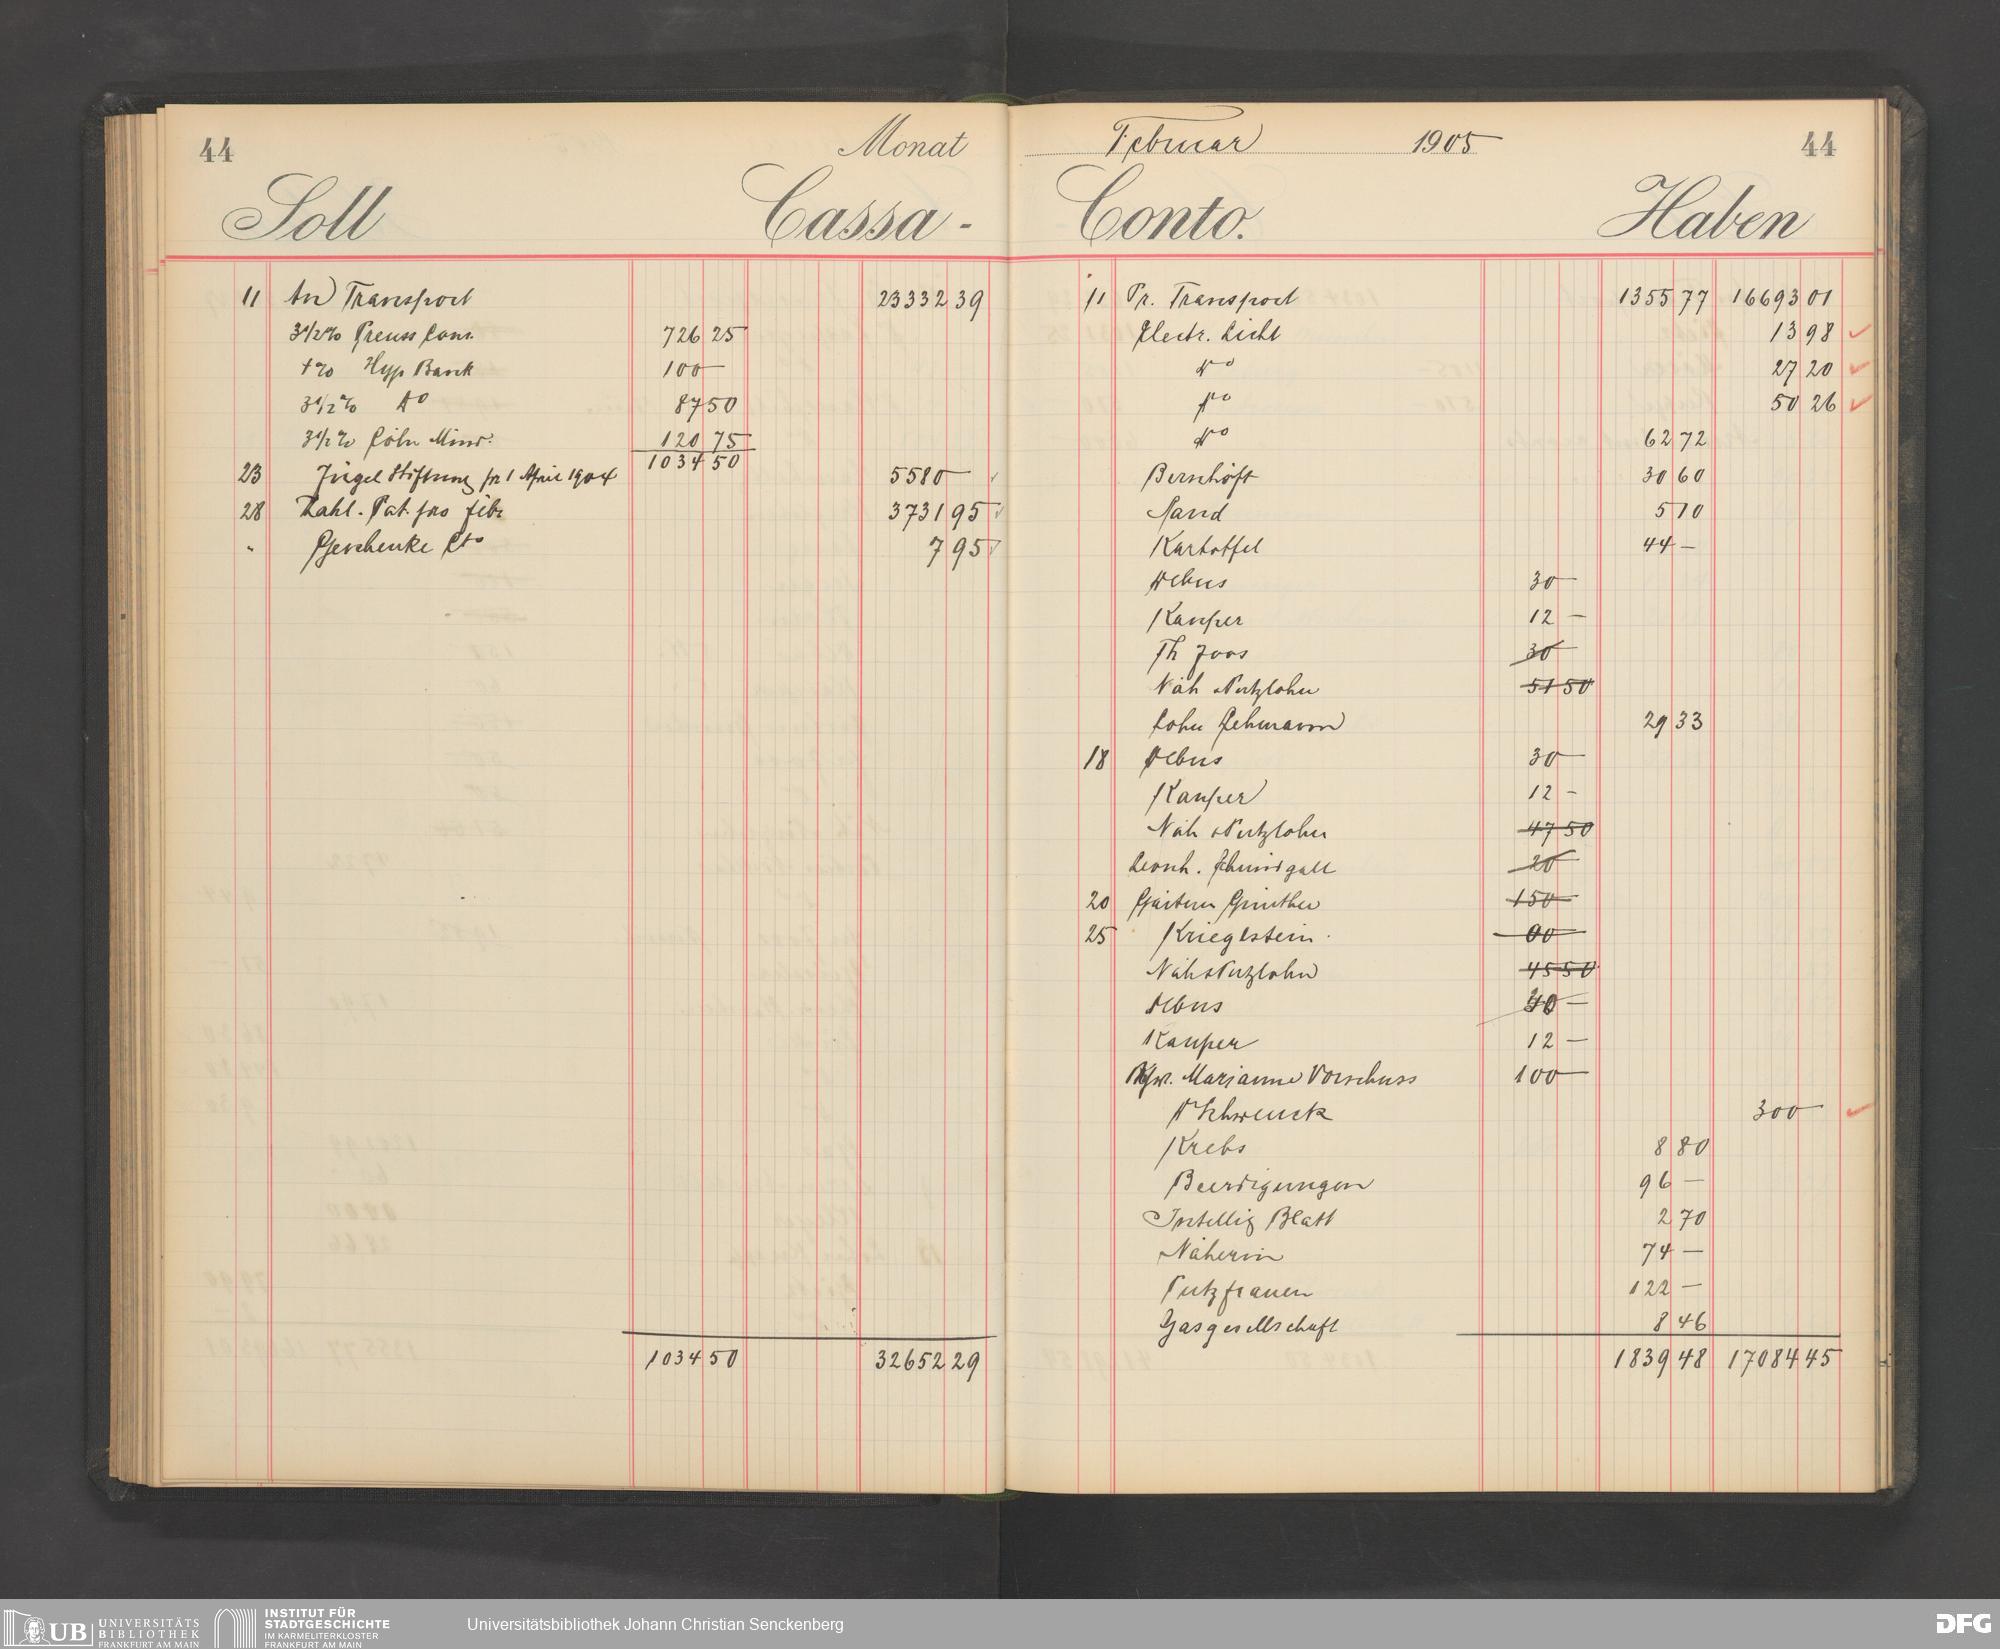 44
Monat
Soll
Cassa-
11 An Transport 23332 39
3 1/2% Preuss Cons. 726 25
4% Hyp Bank 100 —
3 1/2% do 87 50
3 1/2% Cöln Mind. 120 75
1034 50
23 Stiftung pr 1 April 1904 5580 —
28 Zahl. Pat. pro Febr 3731 95
" Geschenke Cto 7 95
1034 50 32652 29
Februar 1905
44
Conto.
Haben
11 Pr. Transport 1355 77 16693 01
Electr. Licht 13 98
do 27 20
do 50 26
do 62 72
30 60
Sand 5 10
Kartoffel 44 —
Debus 30 —
Kamper 12 —
Th Joos 30 —
Näh & Putzlohn 51 50
Lohn Lehmann 29 33
18 Debus 30 —
Kamper 12 —
Näh & Putzlohn 47 50
Leonh. Schmidgall 20 —
20 Gärtner Günther 150 —
25 Krieglstein
Näh & Putzlohn 45 50
Debus
Kamper 12 —
Marianne Vorschuss 100 —
Schwenck 300 —
Krebs 8 80
Beerdigungen 96 —
Intellig Blatt 2 70
Näherin 74 —
Putzfrauen 122 —
Gasgesellschaft 8 46
1839 48 17084 45
UB UNIVERSITÄTS
BIBLIOTHEK
FRANKFURT AM MAIN
INSTITUT FÜR
STADTGESCHICHTE
IM KARMELITERKLOSTER
FRANKFURT AM MAIN
Universitätsbibliothek Johann Christian Senckenberg
DFG